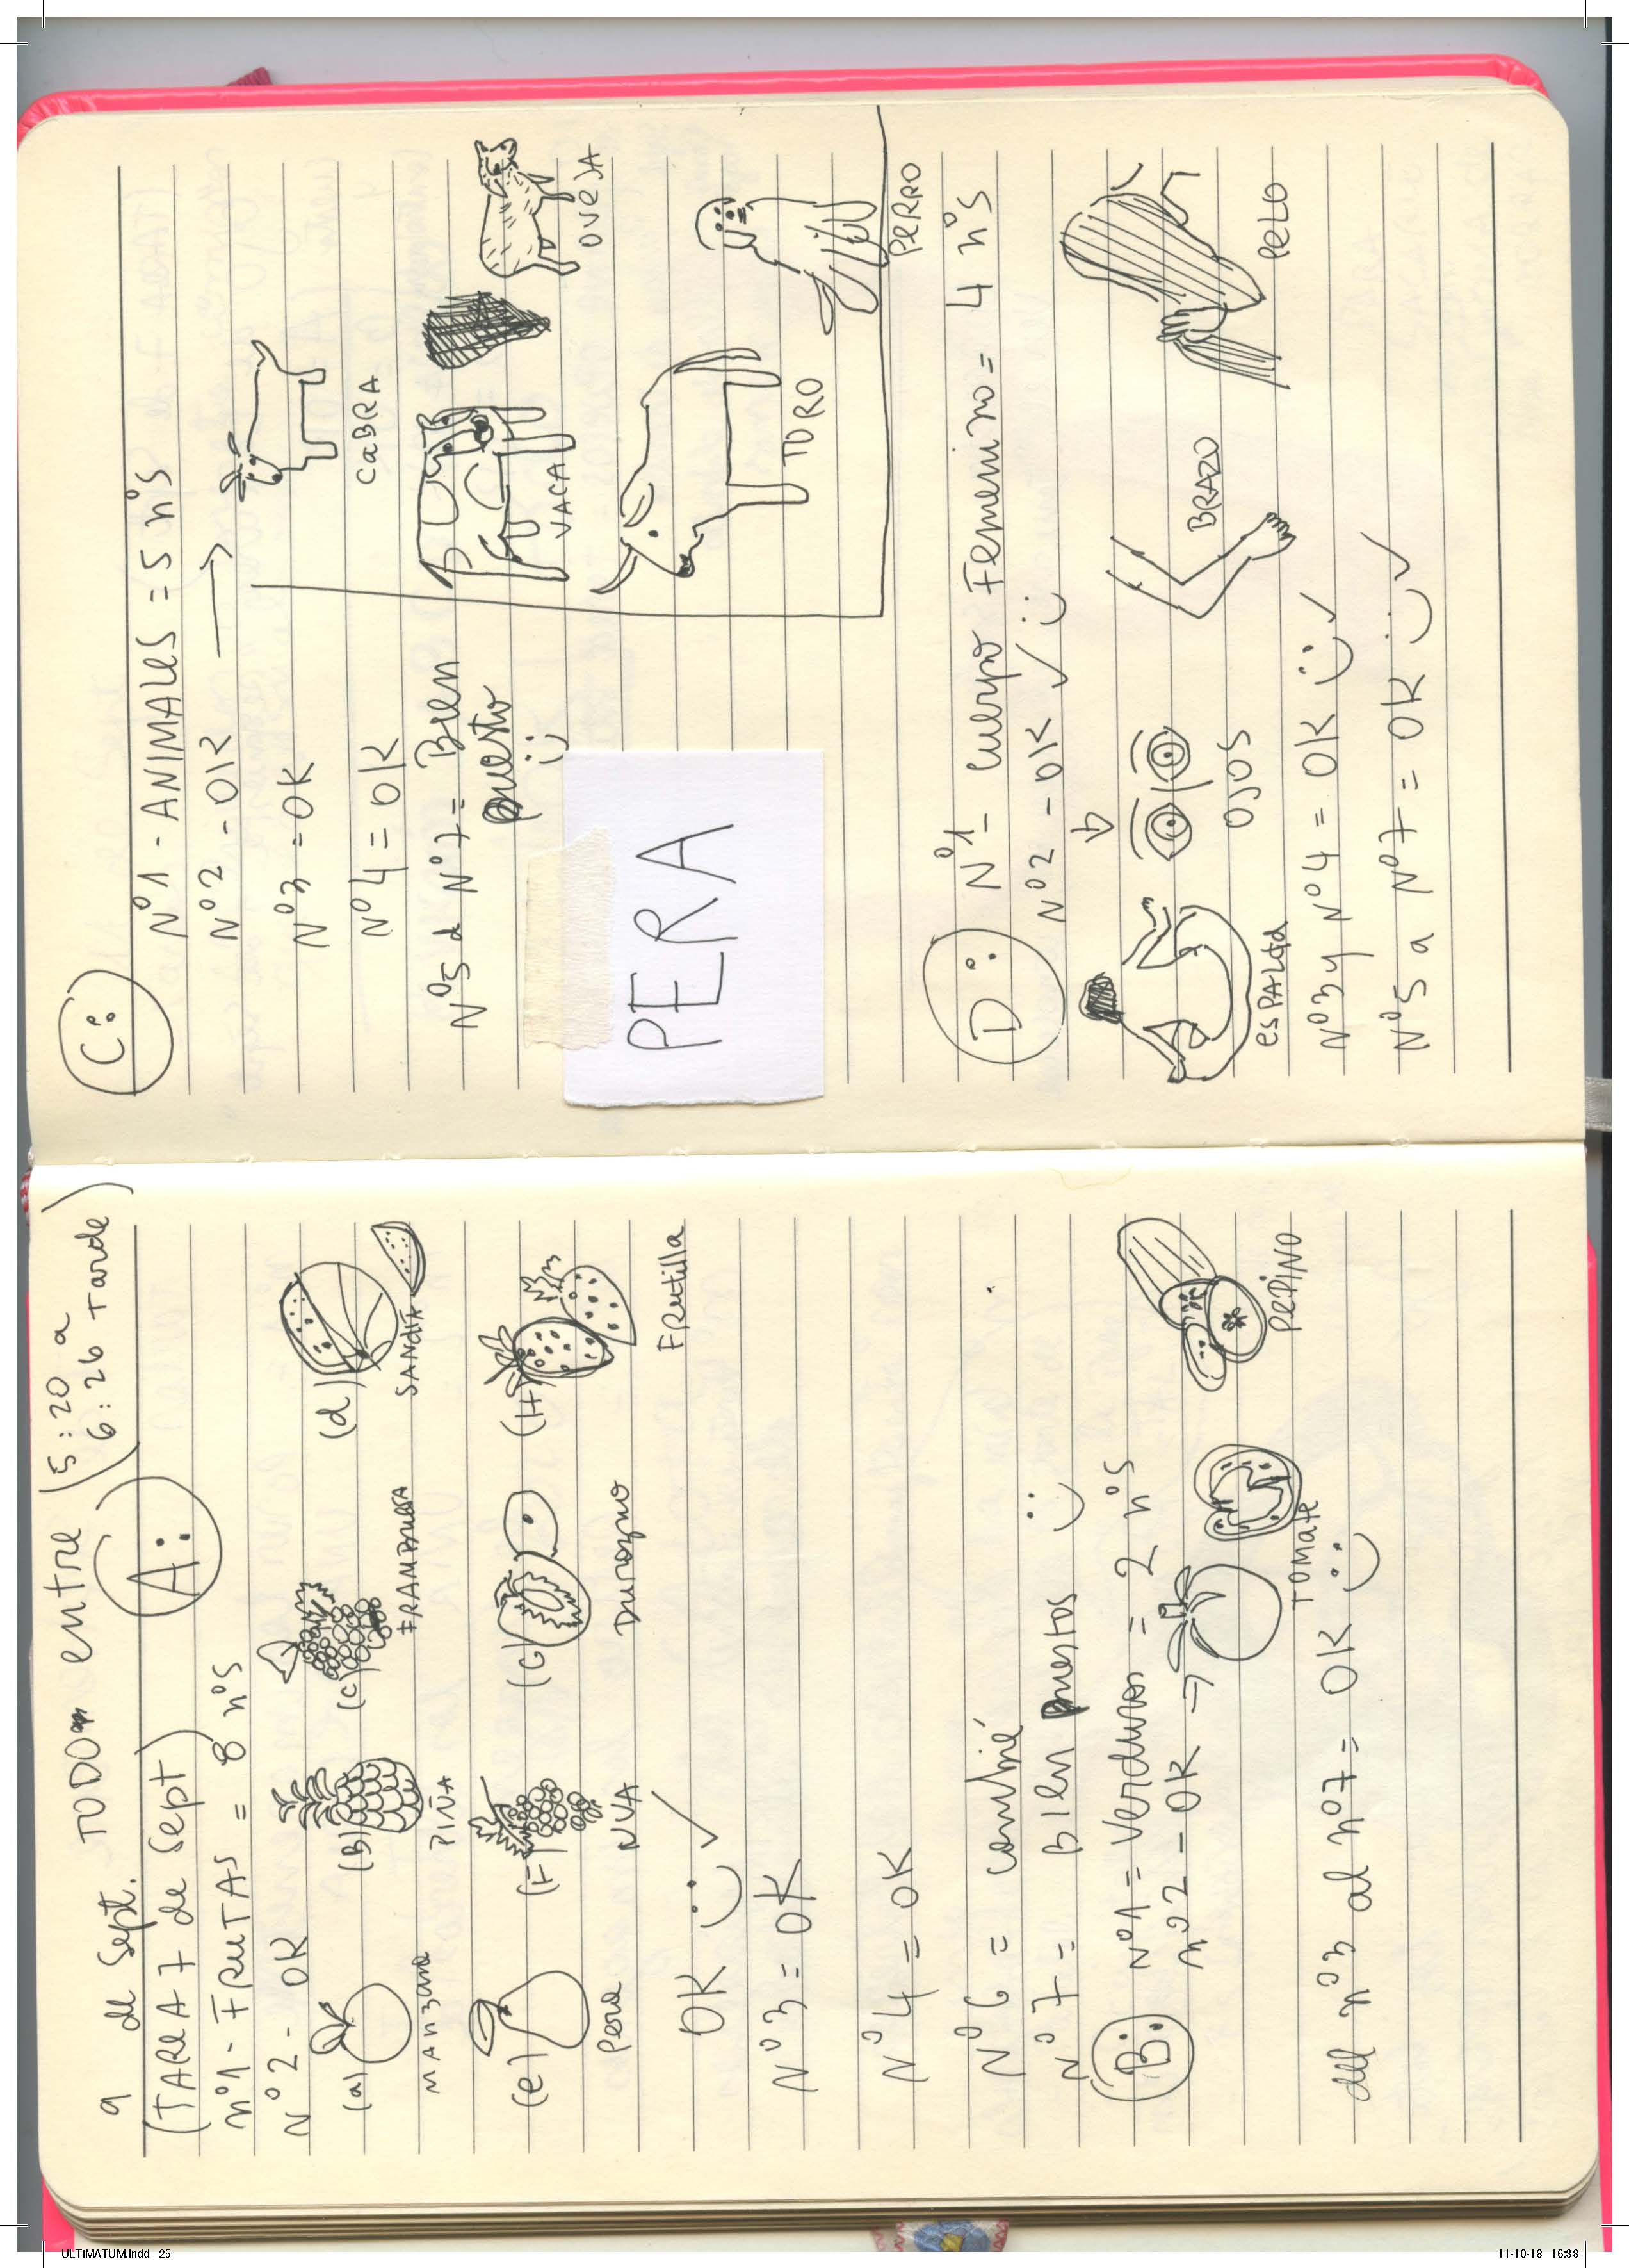 9 de Sept. TODO entre (5:20 a
6:26 tarde)
(TAREA 7 de Sept) A:
nº1 - FRUTAS = 8 nºs
Nº2 - OK
(a) (B) (c) (d)
MANZANA PIÑA FRAMBUESA SANDÍA
(e) (F) (G) (H)
Pera UVA Durazno Frutilla
OK
Nº3 = OK
Nº4 = OK
Nº6 = cambié
Nº7 = Bien puestos
B: Nº1 = Verduras = 2 nºs
nº2 - OK →
TOMATE PEPINO
del nº3 al nº7 = OK
C:
Nº1 - ANIMALES = 5 nºs
Nº2 - OK →
CaBRA
Nº3 - OK
Nº4 = OK
VACA OVEJA
Nº5 a Nº7 = Bien
puesto
TORO PERRO
PERA
D: Nº1 - cuerpo Femenino = 4 nºs
Nº2 - OK
esPALda OJOS BRAZO PELO
Nº3 y Nº4 = OK
Nº5 a Nº7 = OK
ULTIMATUM.indd 25
11-10-18 16:38